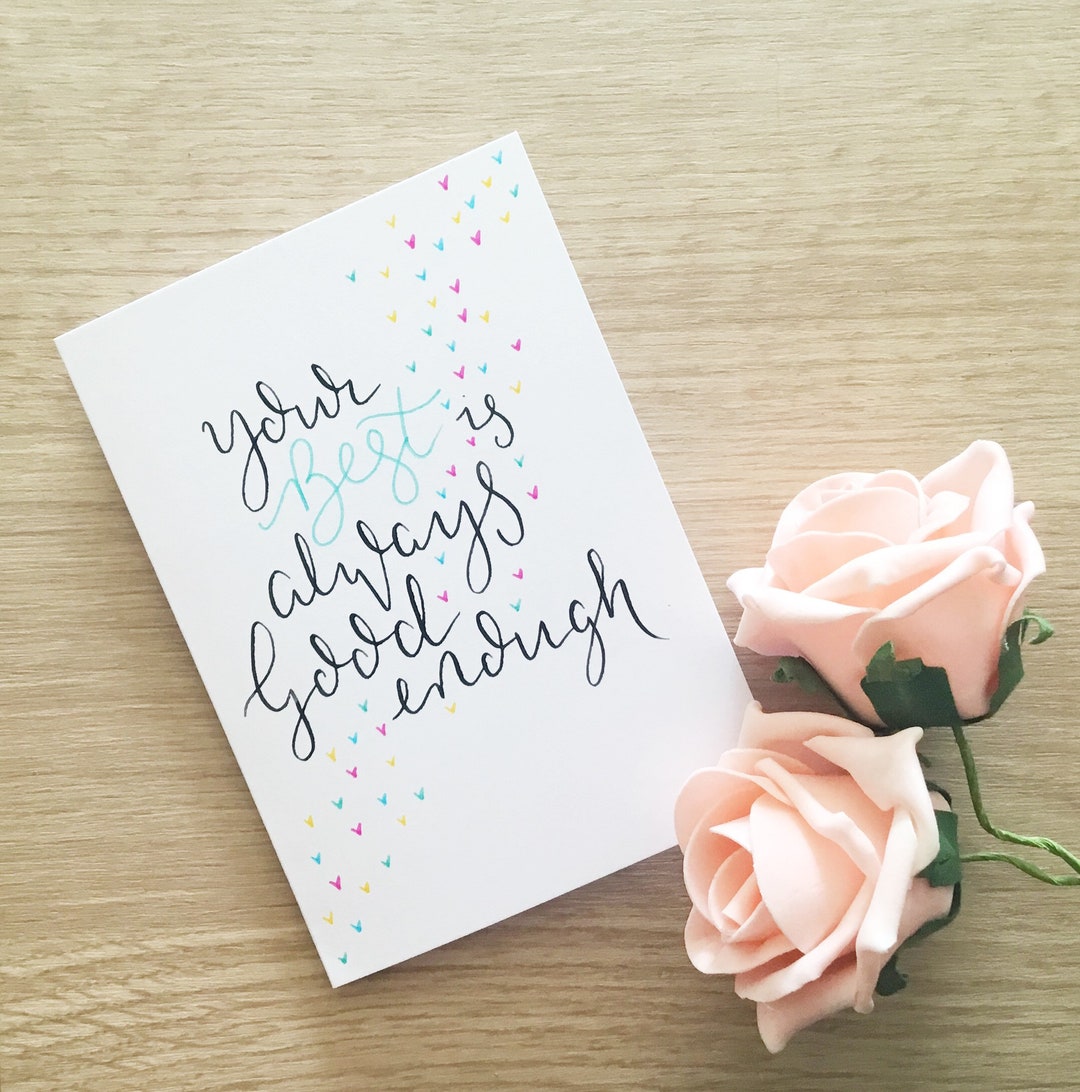 your
Best is
always
Good
enough